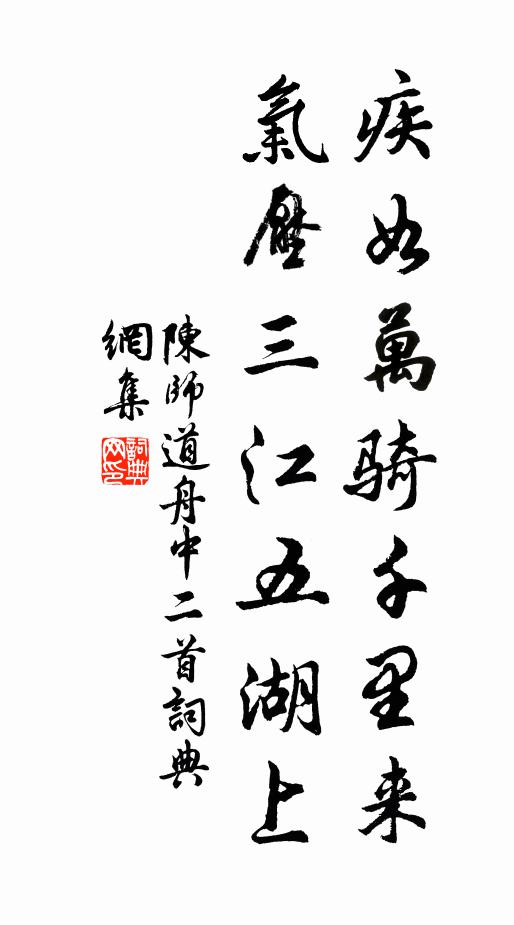 疾如萬騎千里来
氣壓三江五湖上
陳師道舟中二首詞典
網集
詞典网印